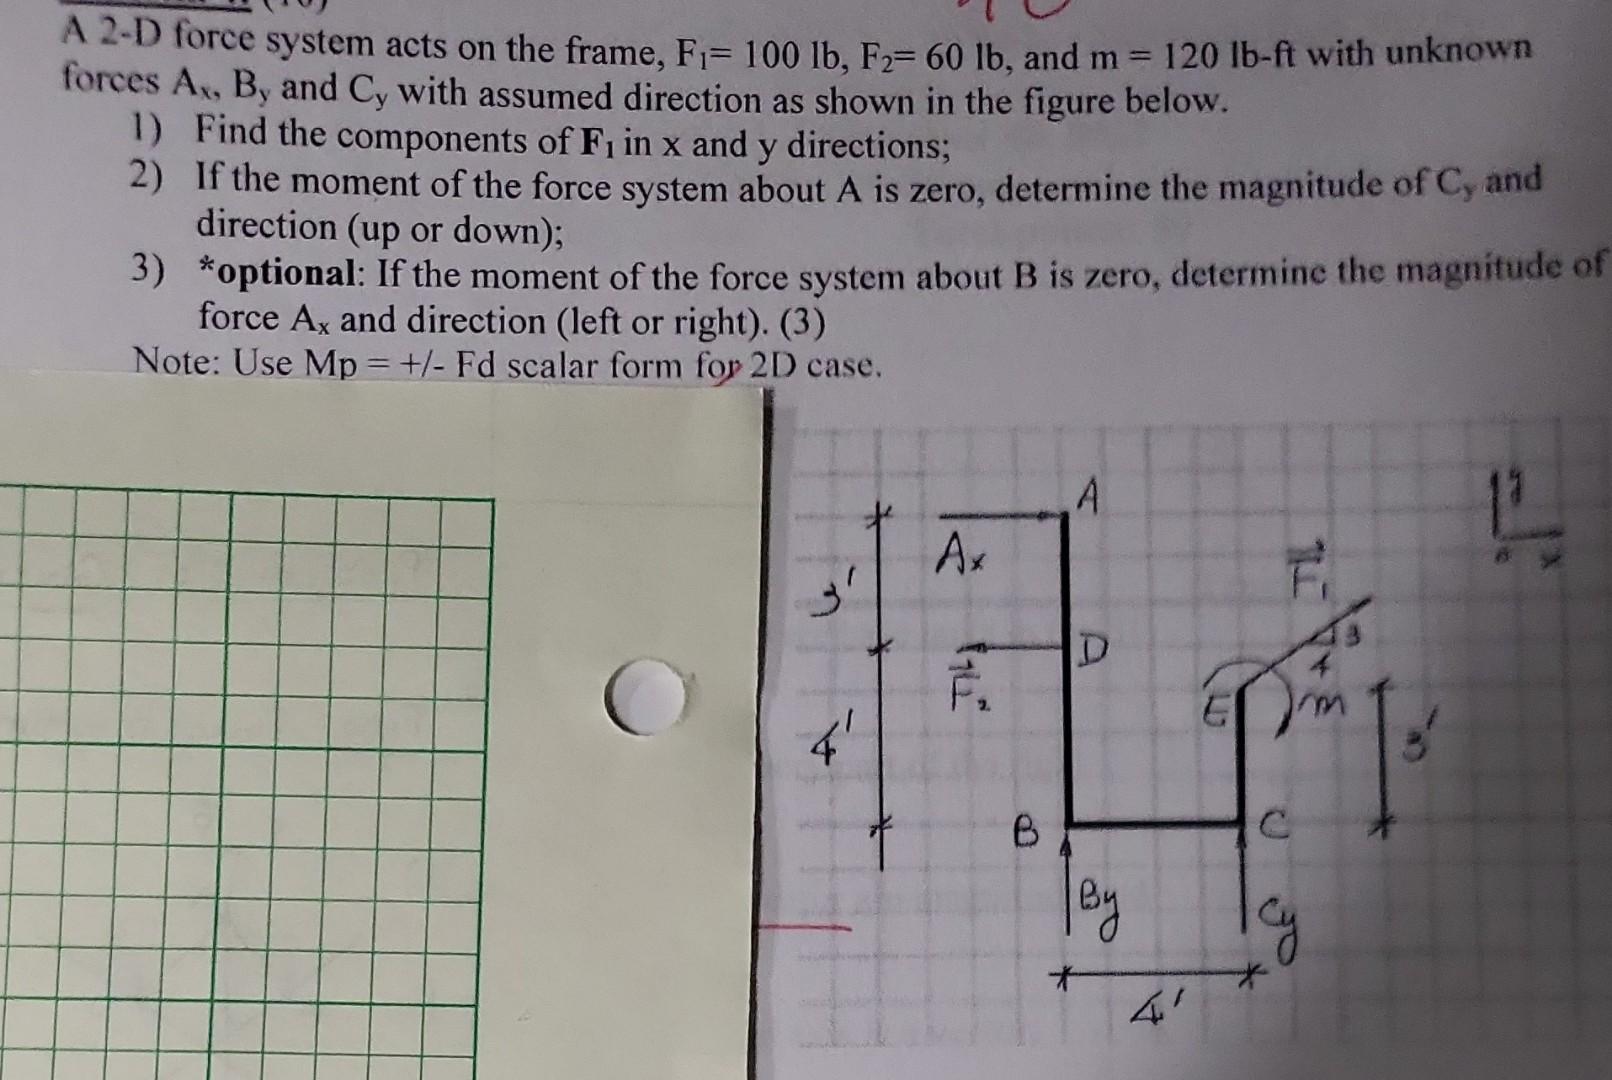 A 2-D force system acts on the frame, F₁= 100 lb, F₂= 60 lb, and m = 120 lb-ft with unknown
forces Aₓ, By and Cy with assumed direction as shown in the figure below.
1) Find the components of F₁ in x and y directions;
2) If the moment of the force system about A is zero, determine the magnitude of Cy and
direction (up or down);
3) *optional: If the moment of the force system about B is zero, determine the magnitude of
force Aₓ and direction (left or right). (3)
Note: Use Mp = +/- Fd scalar form for 2D case.
A
y
Aₓ
x
3'
F₁
3
D
4
F₂
E
m
4'
3'
B
C
By
Cy
4'